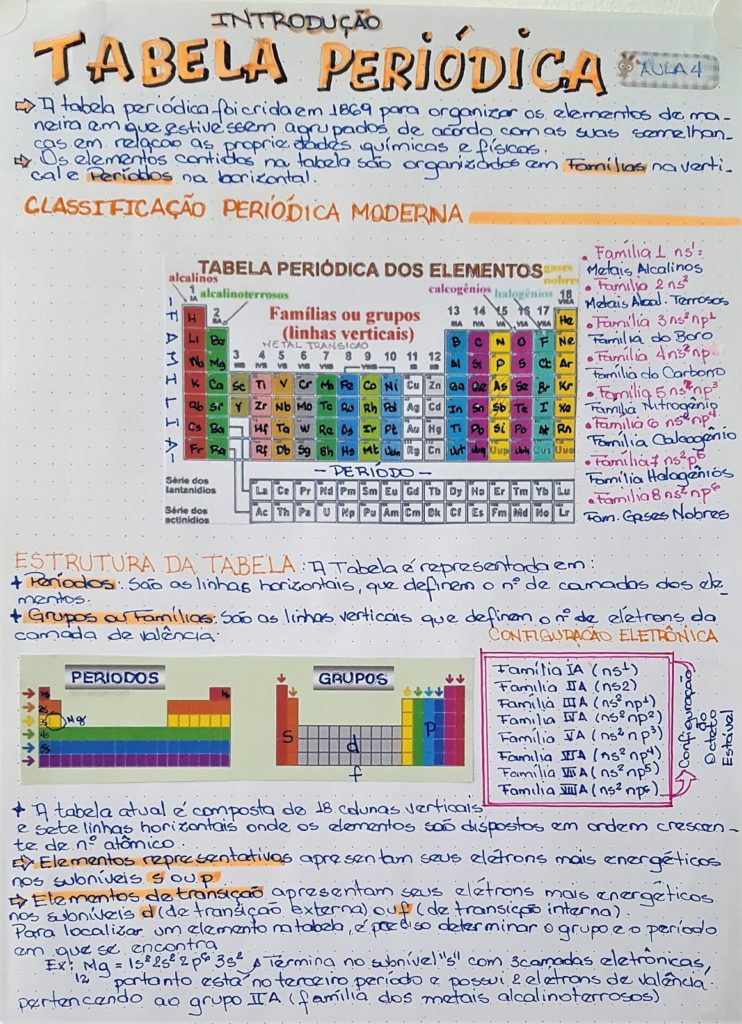 INTRODUÇÃO
TABELA PERIÓDICA
AULA 4
⇨ A tabela periódica foi crida em 1869 para organizar os elementos de ma-
neira em que estivessem agrupados de acordo com as suas semelhan-
ças em relação as propriedades químicas e físicas.
⇨ Os elementos contidos na tabela são organizados em Famílias na verti-
cal e Períodos na horizontal.
CLASSIFICAÇÃO PERIÓDICA MODERNA
TABELA PERIÓDICA DOS ELEMENTOS
alcalinos
alcalinoterrosos
calcogênios
halogênios
gases nobres
Famílias ou grupos
(linhas verticais)
METAL TRANSIÇÃO
-FAMILIA-
1 2 3 4 5 6 7 8 9 10 11 12 13 14 15 16 17 18
H He
Li Be B C N O F Ne
Na Mg Al Si P S Cl Ar
K Ca Sc Ti V Cr Mn Fe Co Ni Cu Zn Ga Ge As Se Br Kr
Rb Sr Y Zr Nb Mo Tc Ru Rh Pd Ag Cd In Sn Sb Te I Xe
Cs Ba Hf Ta W Re Os Ir Pt Au Hg Tl Pb Si Po At Rn
Fr Ra Rf Db Sg Bh Hs Mt Uun Rg Cn
- PERÍODO -
Série dos
lantanídios
La Ce Pr Nd Pm Sm Eu Gd Tb Dy Ho Er Tm Yb Lu
Série dos
actinídios
Ac Th Pa U Np Pu Am Cm Bk Cf Es Fm Md No Lr
• Família 1 ns¹:
Metais Alcalinos
• Família 2 ns²
Metais Alcal. Terrosos
• Família 3 ns² np¹
Família do Boro
• Família 4 ns² np²
Família do Carbono
• Família 5 ns² np³
Família Nitrogênio
• Família 6 ns² np⁴
Família Calcogênio
• Família 7 ns² np⁵
Família Halogênios
• Família 8 ns² np⁶
Fam. Gases Nobres
ESTRUTURA DA TABELA: A Tabela é representada em:
+ Períodos: São as linhas horizontais, que definem o nº de camadas dos ele-
mentos.
+ Grupos ou Famílias: São as linhas verticais que definem o nº de elétrons da
camada de valência.
CONFIGURAÇÃO ELETRÔNICA
PERÍODOS
1s
1s
2s
3s
Mg
4s
5s
GRUPOS
s
d
p
f
Família IA (ns¹)
Família IIA (ns2)
Família IIIA (ns² np¹)
Família IVA (ns² np²)
Família VA (ns² np³)
Família VIA (ns² np⁴)
Família VIIA (ns² np⁵)
Família VIIIA (ns² np⁶)
Configuração
do
Octeto
Estável
+ A tabela atual é composta de 18 colunas verticais
e sete linhas horizontais onde os elementos são dispostos em ordem crescen-
te de nº atômico.
⇨ Elementos representativos apresentam seus elétrons mais energéticos
nos subníveis s ou p.
⇨ Elementos de transição apresentam seus elétrons mais energéticos
nos subníveis d (de transição externa) ou f (de transição interna).
Para localizar um elemento na tabela, é preciso determinar o grupo e o período
em que se encontra
Ex: Mg = 1s² 2s² 2p⁶ 3s² Termina no subnível "s" com 3 camadas eletrônicas,
12 portanto está no terceiro período e possui 2 eletrons de valência
pertencendo ao grupo IIA (família dos metais alcalinoterrosos)